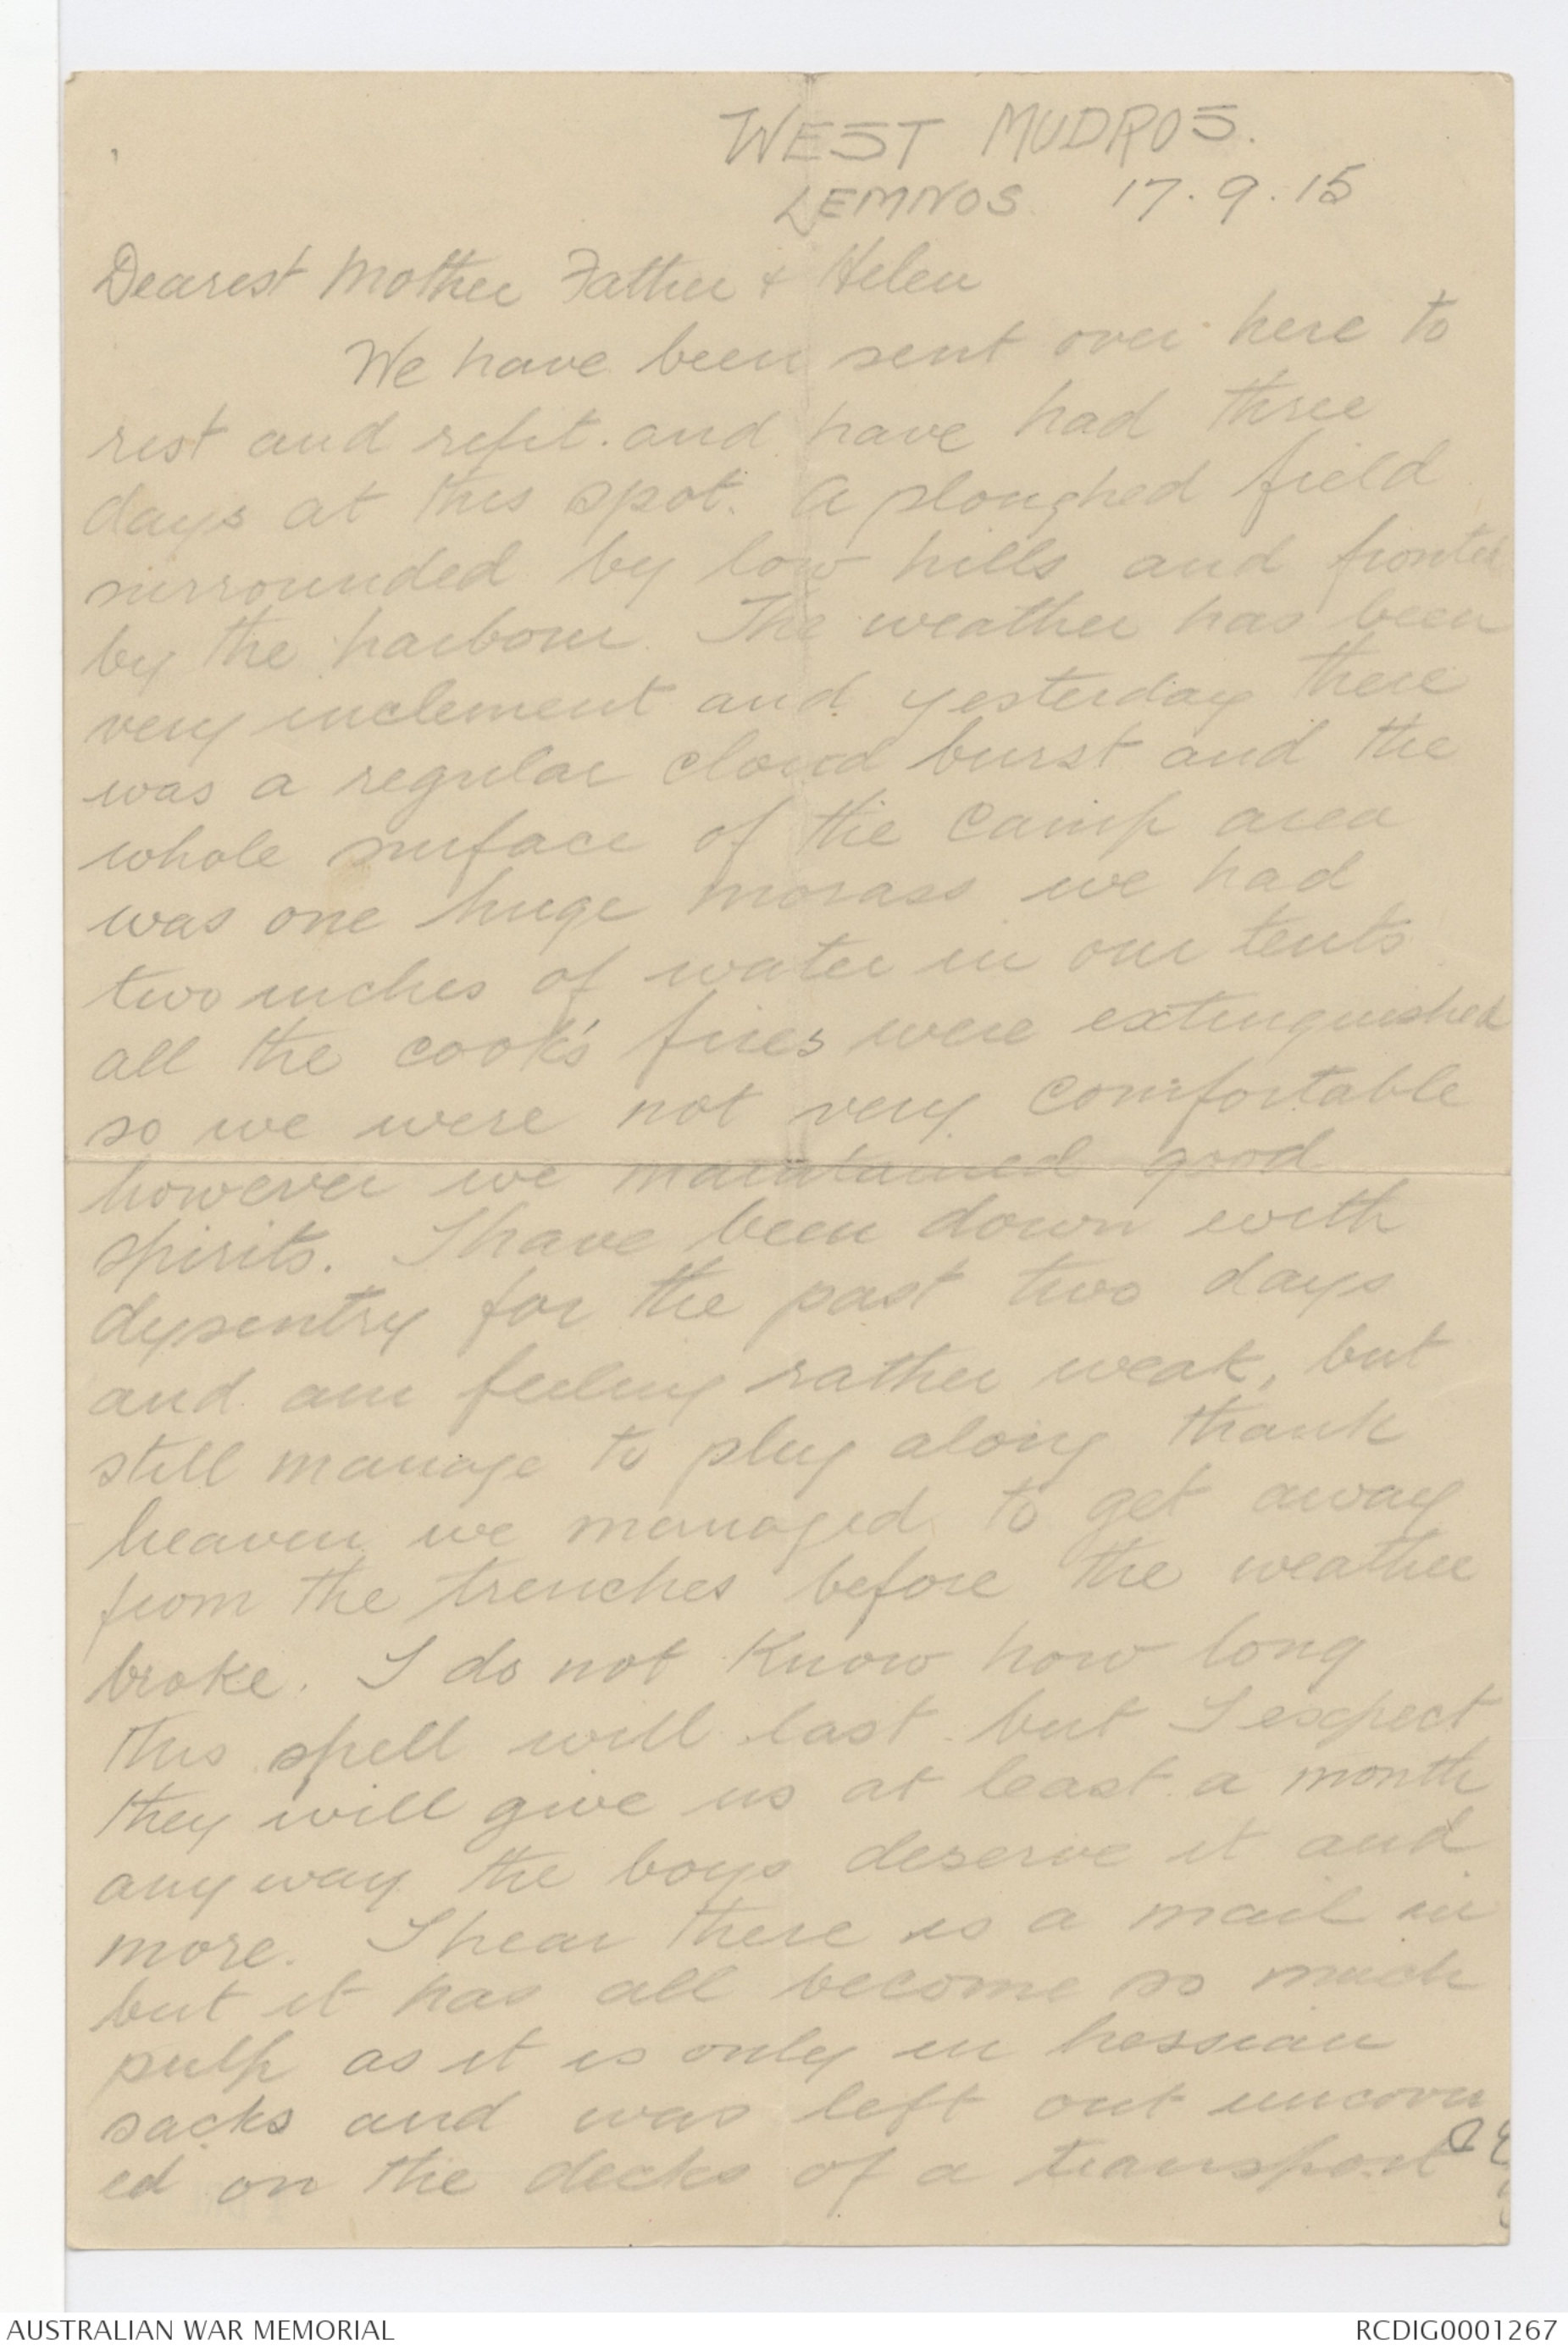 WEST MUDROS.
LEMNOS. 17.9.15
Dearest Mother Father & Helen
We have been sent over here to
rest and refit. and have had three
days at this spot. A ploughed field
surrounded by low hills and fronted
by the harbour. The weather has been
very inclement and yesterday there
was a regular cloud burst and the
whole surface of the camp area
was one huge morass we had
two inches of water in our tents
all the cook's fires were extinguished
so we were not very comfortable
however we maintained good
spirits. I have been down with
dysentry for the past two days
and am feeling rather weak, but
still manage to plug along thank
heaven we managed to get away
from the trenches before the weather
broke. I do not know how long
this spell will last but I expect
they will give us at least a month
anyway the boys deserve it and
more. I hear there is a mail in
but it has all become so much
pulp as it is only in hessian
sacks and was left out uncover
ed on the decks of a transport
AUSTRALIAN WAR MEMORIAL
RCDIG0001267